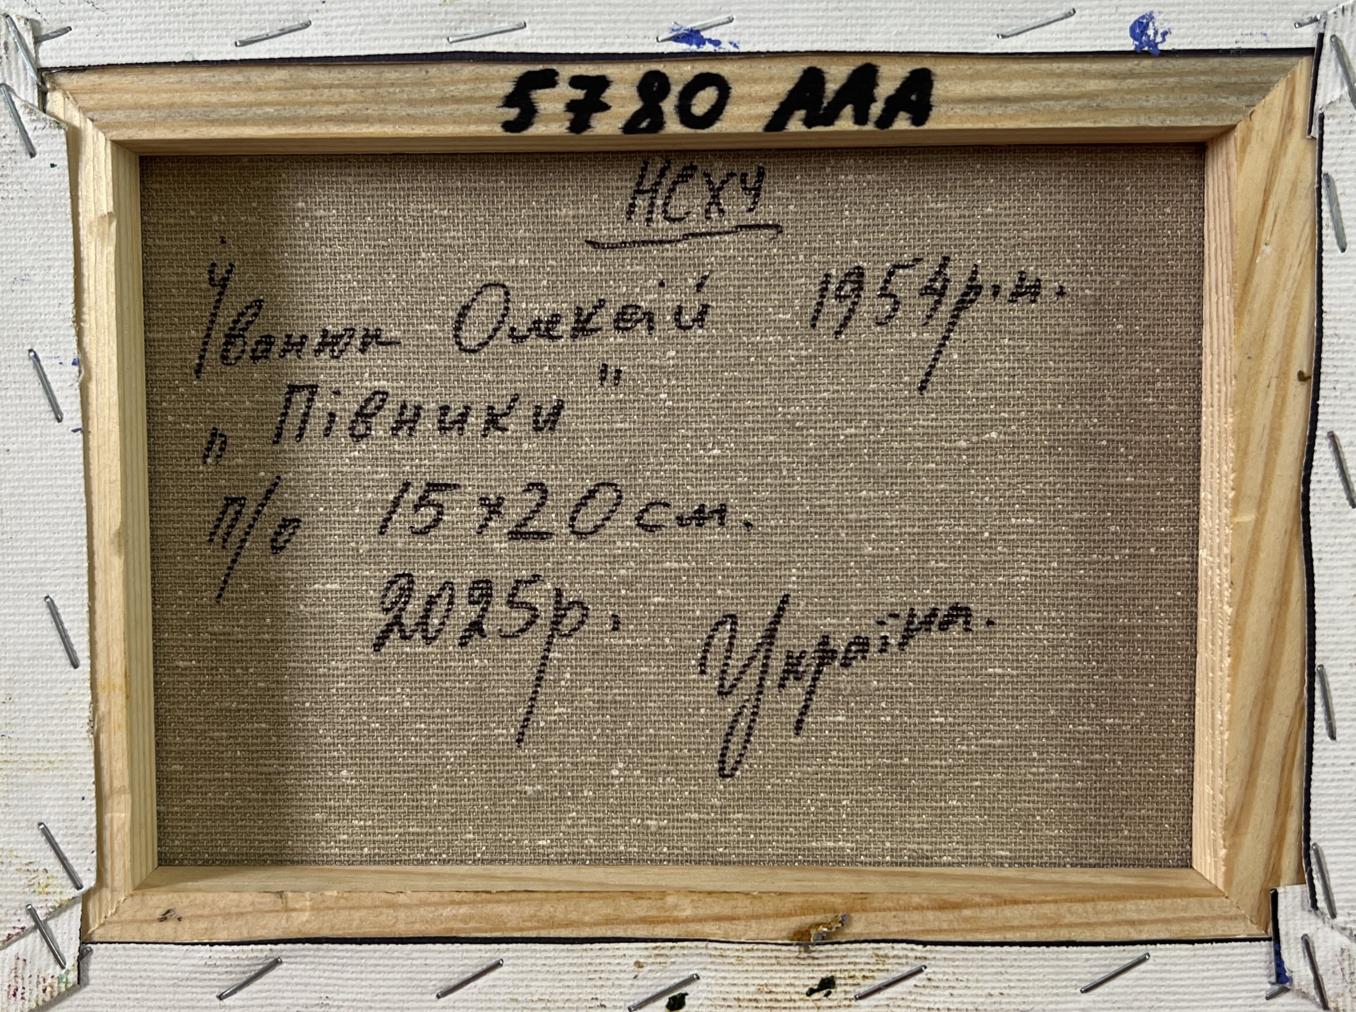 5780 ААА
НСХУ
Іванюк Олексій 1954р.н.
„Півники"
п/о 15×20см.
2025р.
Україна.